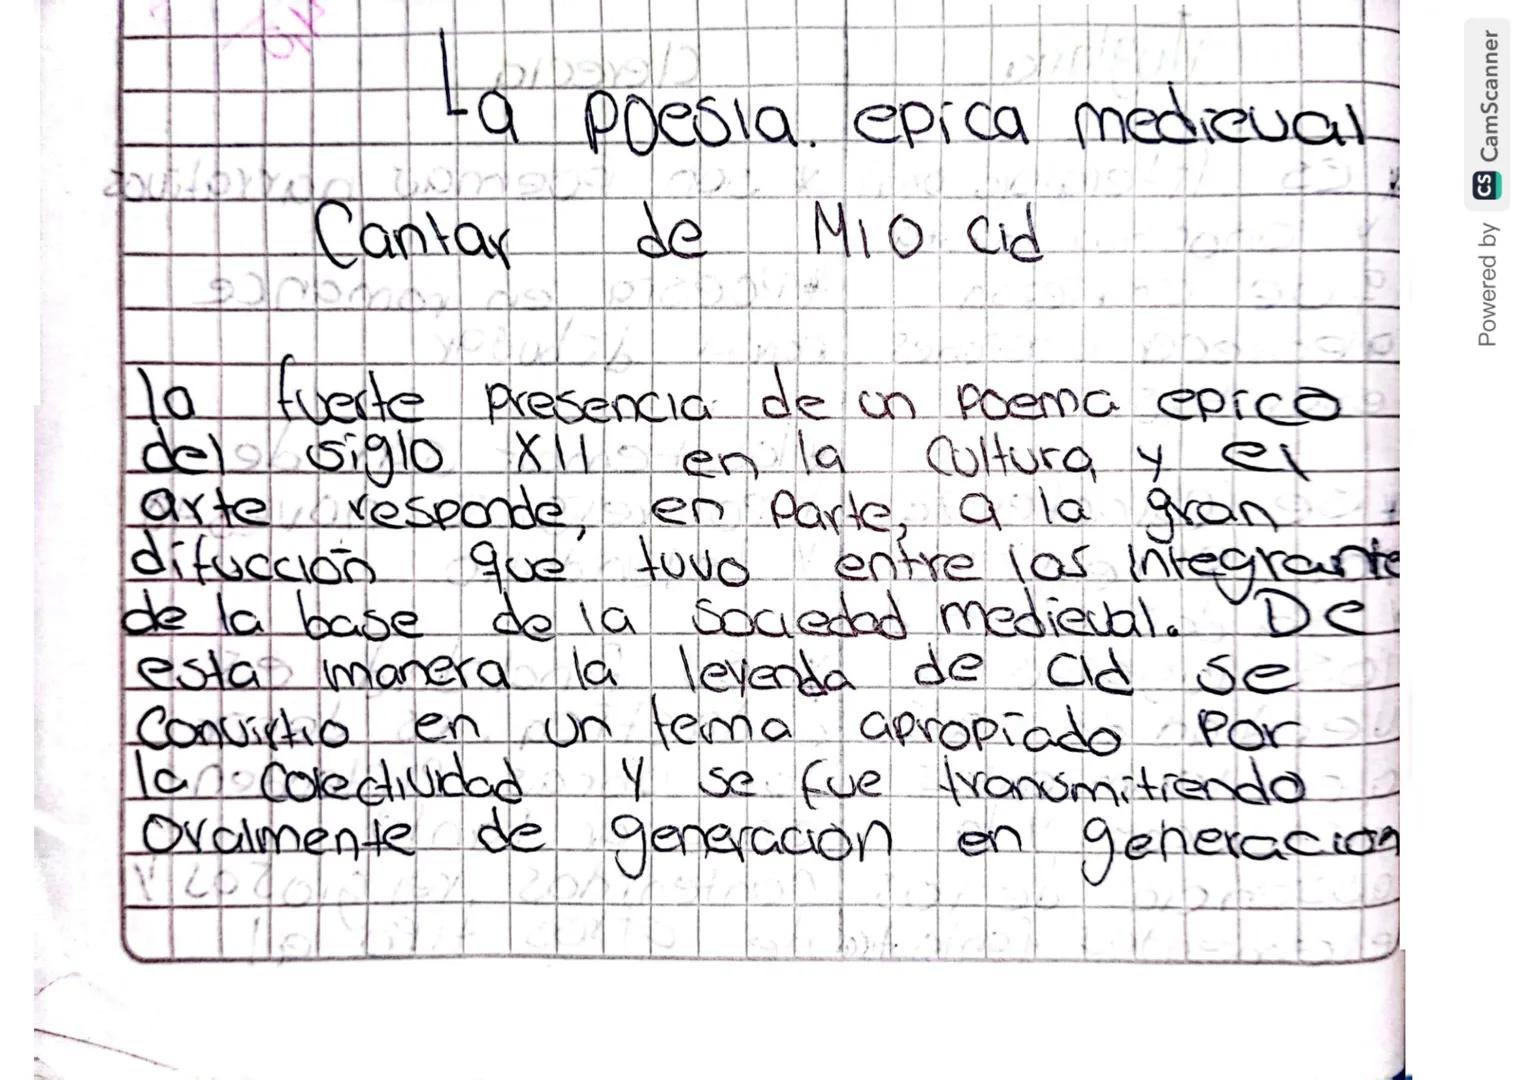 La poesia. epica medieval
Cantar de MIO Cid
la fuerte presencia de un poema epico
del siglo XII en la cultura y el
arte responde, en parte, a la gran
difucción que tuvo entre los integrante
de la base de la sociedad medieval. De
esta manera la leyenda de Cid se
convirtio en un tema apropiado por
la colectividad y se fue transmitiendo
oralmente de generacion en generacion
Powered by CS CamScanner